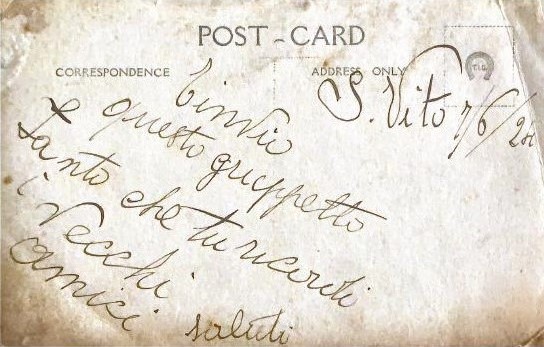 POST-CARD
CORRESPONDENCE
ADDRESS ONLY
S. Vito 7/6/20
T'invio
questo gruppetto
Tanto che tu ricordi
i vecchi
amici
saluti